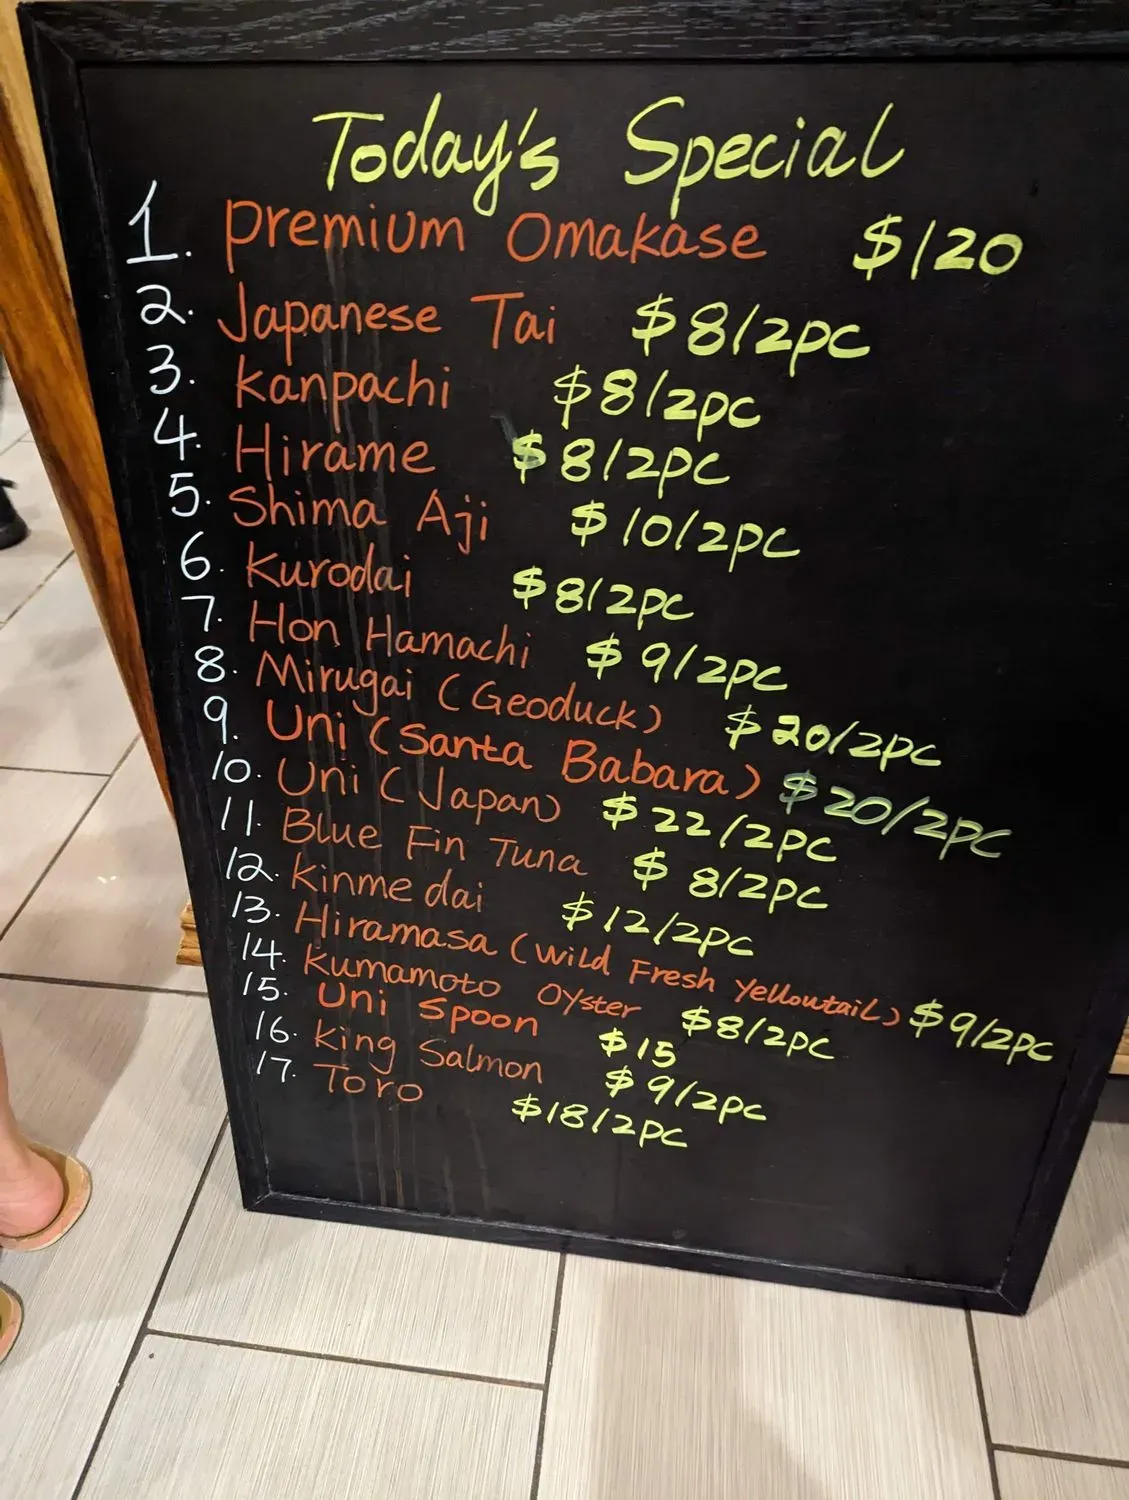 Today's Special
1. Premium Omakase $120
2. Japanese Tai $8/2PC
3. Kanpachi $8/2PC
4. Hirame $8/2PC
5. Shima Aji $10/2PC
6. Kurodai $8/2PC
7. Hon Hamachi $9/2PC
8. Mirugai (Geoduck) $20/2PC
9. Uni (Santa Babara) $20/2PC
10. Uni (Japan) $22/2PC
11. Blue Fin Tuna $8/2PC
12. Kinme dai $12/2PC
13. Hiramasa (Wild Fresh Yellowtail) $9/2PC
14. Kumamoto Oyster $8/2PC
15. Uni Spoon $15
16. King Salmon $9/2PC
17. Toro $18/2PC